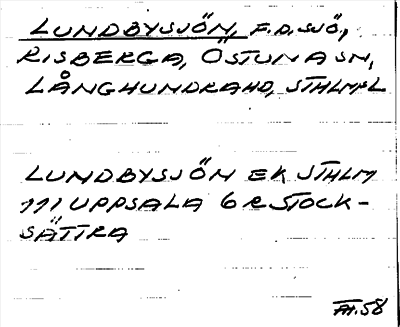 LUNDBYSJÖN, F.D. SJÖ,
RISBERGA, ÖSTUNA SN,
LÅNGHUNDRA HD, STHLMSL
LUNDBYSJÖN EK STHLM
111 UPPSALA 6 R STOCK-
SÄTTRA
.58